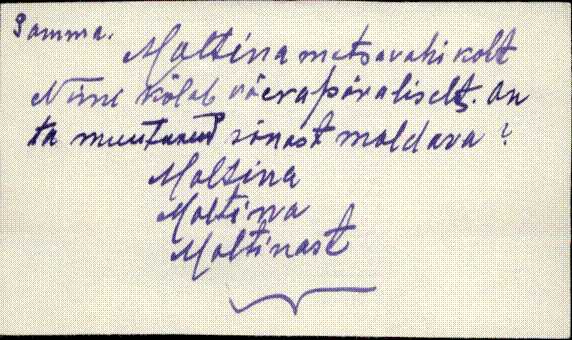 Samma.
Moltina metsavahi koht
Nimi kõlab võerapäraliselt. On
ta muutunud sõnast moldava?
Moltina
Moltina
Moltinast